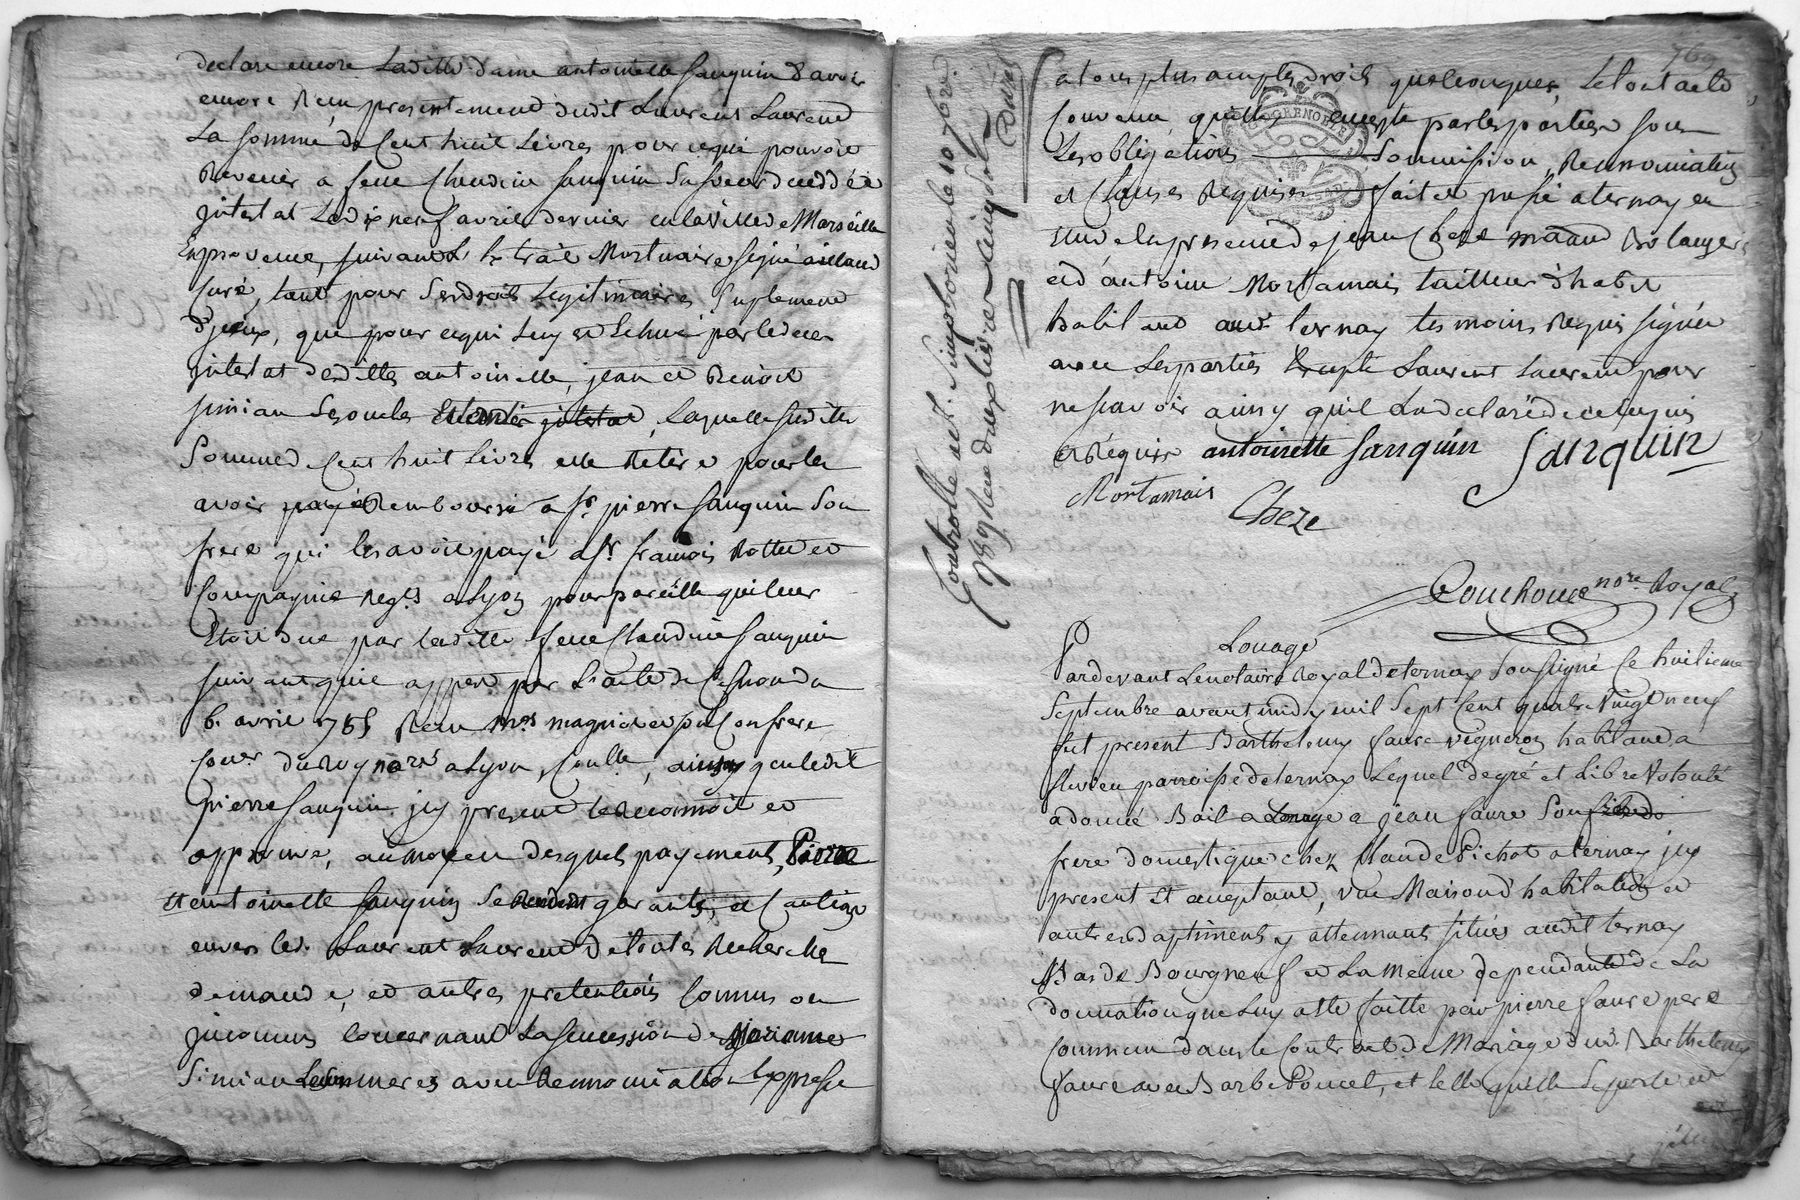 declare encore Laditte dame antoinette sanquin d'avoir
encore Reçu presentement dudit Laurent Laurend
La somme de Cent huit Livres pour ce qui pouvoit
Revenir a feue Claudine sanquin sa sœur decedée
intestat Le dix neuf avril dernier en la ville de Marseille
En provence, suivant L'extrait Mortuaire signé
Curé, tant pour ses droits Legitimaires suplement
d'yceux, que pour ce qui Luy est Echue par le deces
intestat desdittes antoinette, jean et Benoit
simian ses oncles, Laquelle susditte
Somme de Cent huit Livres elle Retire pour les
avoir payé Remboursé a sr. pierre sanquin son
frere qui les avoit payé a sr francois Rottu et
Compagnie neg.ts a Lyon pour pareille qui leur
Etoit due par laditte feue Claudine sanquin
suivant qu'il appert par L'acte de
6. avril 1785 Recu m.rs et son Confrere
Con.er du Roy not.re a Lyon, ainsy que ledit
pierre sanquin jcy present le Reconnoit et
approuve, au moyen desquels payements, Pierre
et antoinette sanquin se Rendent garants et Cautions
envers led. Laurent Laurend de toutes Recherche
demande, et autres pretentions Connus ou
jnconnus concernant La succession de Marianne
Simian Leur mere avec Rennonciation Expresse
769
a tous plus amples droits quelconques, Le tout a eté
Convenu, quitté, accepté par les parties sous
Les obligations Soumission, Rennonciation
et Clauses Requises fait et passé a ternay en
etude en presence de jean Cheze maitre Boulanger
et d'antoine Mortamais tailleur d'habit
habitant aud. ternay temoins Requis signés
avec Les parties Excepté Laurent Laurend pour
ne scavoir ainsy qu'il La declaré de ce enquis
et Requis antoinette sanquin Sanquin
Mortamais
Cheze
GRENOBLE
Controllé a St. Simphorien le 10 7bre.
1789 Reçu deux livres cinq sols
nore. Royal
Louage
Pardevant Le notaire Royal de ternay soussigné Ce huitieme
Septembre avant midy mil Sept Cent quatre Vingt neuf
fut present Barthelemy faure vigneron habitant a
flevieu parroisse de ternay Lequel de gré et Libre Volonté
a donné Bail a Louage a jean faure Son
frere domestique chez Claude Pichat a ternay jcy
present et acceptant, une Maison d'habitation et
autres batiments y attennants situés audit ternay
Mas de Bourgneuf et La même dependante de La
donnation que Luy a été faitte par pierre faure pere
Commun dans le Contract de Mariage dud. Barthelemy
faure avec Barbe Poncet, et telle qu'elle se porte et